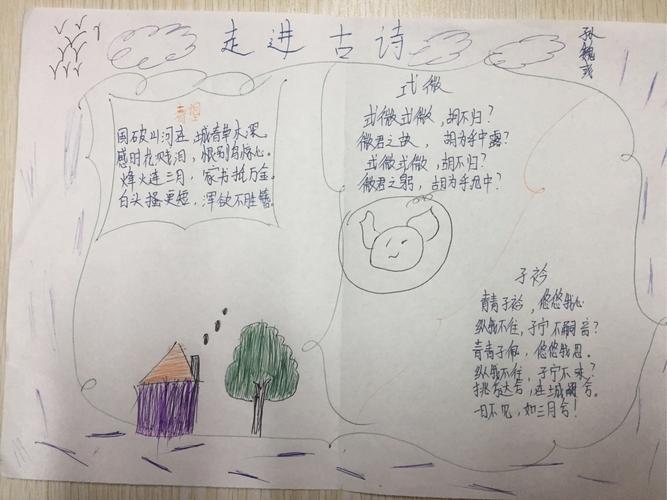 走进古诗
孙魏
春望
国破山河在,城春草木深。
感时花溅泪,恨别鸟惊心。
烽火连三月,家书抵万金。
白头搔更短,浑欲不胜簪。
式微
式微式微,胡不归?
微君之故,胡为乎中露?
式微式微,胡不归?
微君之躬,胡为乎泥中?
子衿
青青子衿,悠悠我心
纵我不往,子宁不嗣音?
青青子佩,悠悠我思。
纵我不往,子宁不来?
挑兮达兮,在城阙兮。
一日不见,如三月兮!